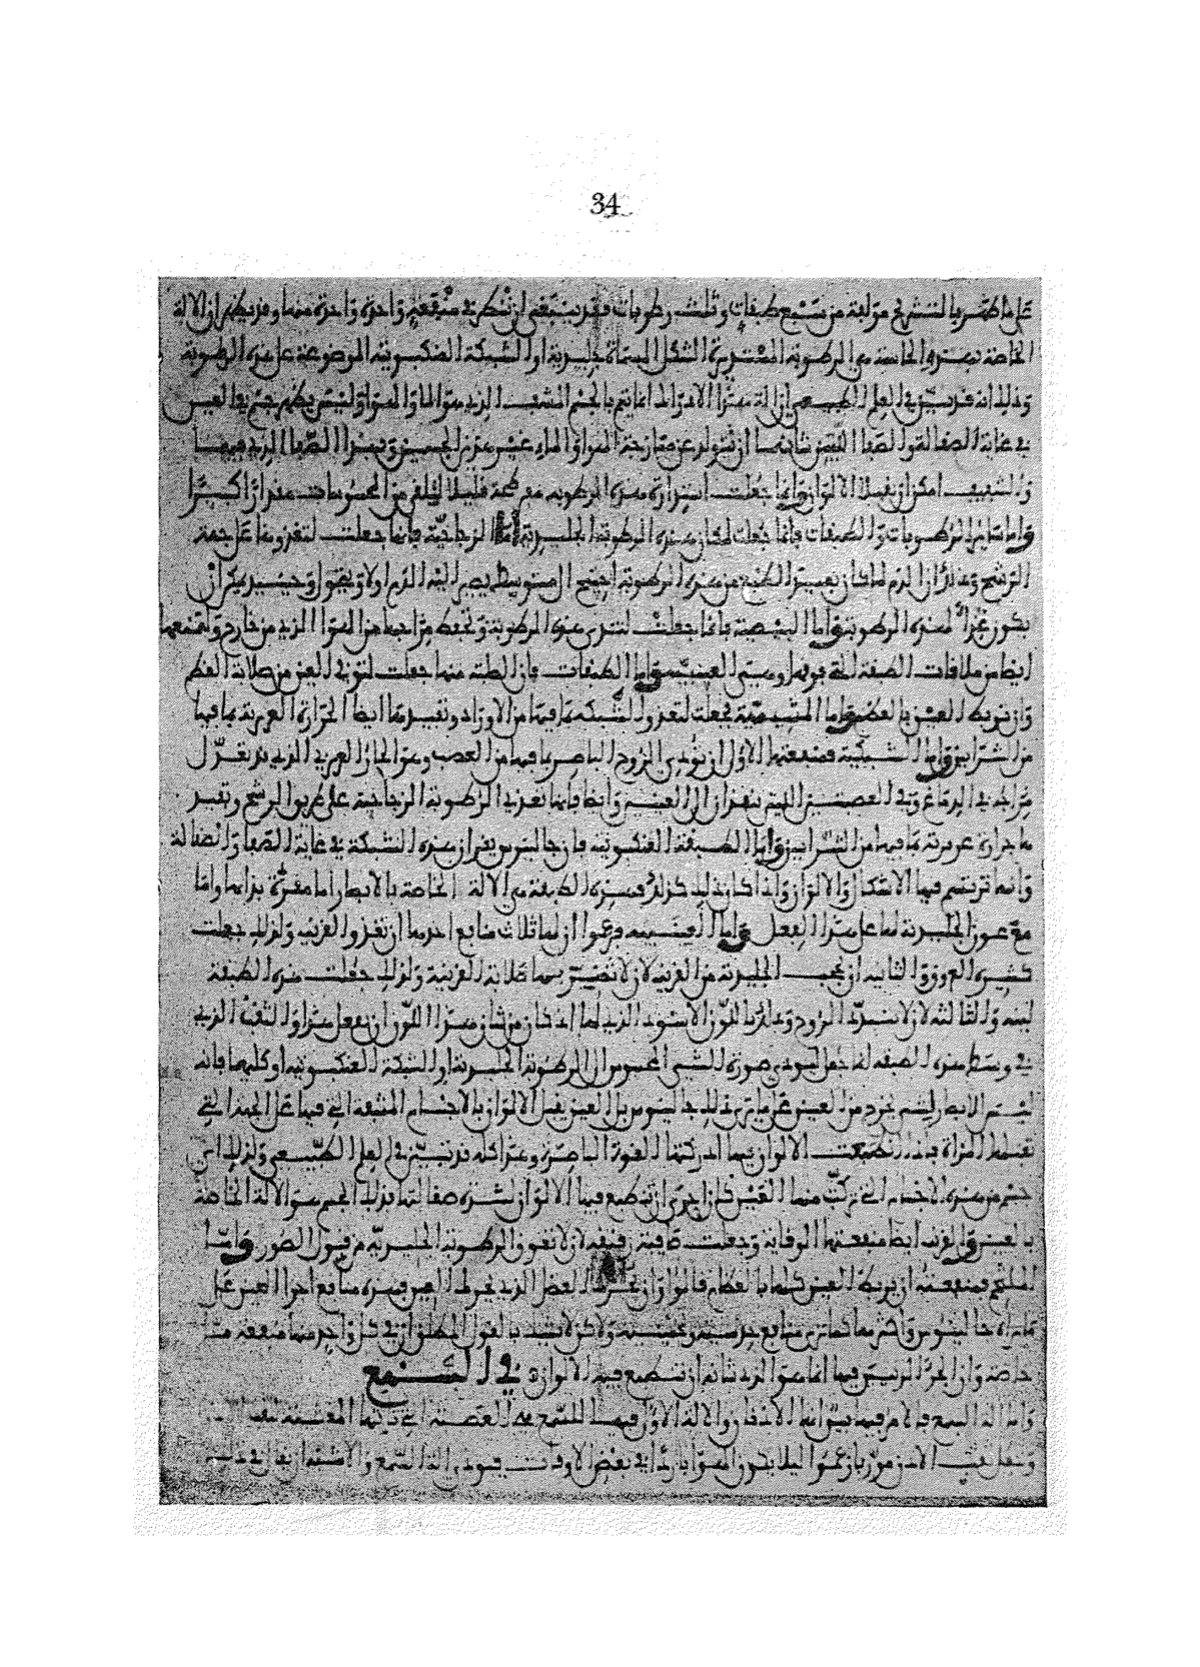 34
على ما ظهر بالتشريح مؤلفة من سبع طبقات وثلث رطوبات فقد ينبغي ان ننظر في منفعة واحدة واحدة منها وقد يظهر ان الالة
الخاصة بهذه الحاسة هي الرطوبة المستديرة الشكل المسماة جليدية او الشبكة العنكبوتية الموضوعة على هذه الرطوبة
وذلك انه قد تبين في العلم الطبيعي ان الة هذا الادراك انما يتم بالجسم المشف الذي هو الماء والهواء وليس يظهر جسم في العين
في غاية الصقالة والصفا اللذين شانهما ان يتولد عن ممازجة الهواء والماء غير هذين الجسمين وبهذا الصفا الذي فيهما
والشفيف امكن ان يقبلا الالوان وانما جعلت استدارة هذه الرطوبة مع طحة قليلا لتلقى من المحسوسات مقدارا كبيرا
واما سائر الرطوبات والطبقات فانما جعلت لمكان هذه الرطوبة الجليدية اما الزجاجية فانما جعلت لتغذوها على جهة
الرشح وذلك ان الدم لما كان بعيد الطبع من هذه الرطوبة احتيج الى متوسط يصير اليه الدم اولا وحينئذ يمكن ان
يكون غذاء لهذه الرطوبة واما البيضية فانما جعلت لتندي هذه الرطوبة وتحفظ مزاجها من الهواء الذي من خارج ولتمنعها
ايضا من ملاقات الطبقة التي فوقها وهي العنبية واما الطبقات فان الصلبة منها جعلت لتوقي العين من صلابة العظم
وان تربط العين بالعظم واما المشيمية فجعلت لتغذو الشبكة بما فيها من الاوراد وتفيدها ايضا الحرارة الغريزية بما فيها
من الشرايين واما الشبكية فمنفعتها الاول ان تؤدي الروح الباصر بما فيها من العصب وهو الحار الغريزي الذي قد تعدل
مزاجه في الدماغ وفي العصبتين اللتين تنفذان الى العينين وايضا فانها تغذي الرطوبة الزجاجية على طريق الرشح وتفيد
ها حرارة غريزية بما فيها من الشرايين واما الطبقة العنكبوتية فان جالينوس يقر ان هذه الشبكة في غاية الصفا والصقالة
وانه ترتسم فيها الاشكال والالوان واذا كان ذلك كذلك فهذه الطبقة هي الالة الخاصة بالابصار اما مفردة بذاتها واما
معونة الجليدية لها على هذا الفعل واما العنبية فزعموا ان لها ثلاث منافع احدها ان تغذو القرنية ولذلك جعلت
كثيرة العروق والثانية ان تحجب الجليدية من القرنية لان لا تضر بها صلابة القرنية ولذلك جعلت هذه الطبقة
لينة والثالثة لان لا يتبدد الروح وذلك باللون الاسود الذي لها اذ كان من شان هذا اللون ان يفعل هذا والثقب الذي
في وسط هذه الطبقة انما جعل ليؤدي صورة الشي المحسوس الى الرطوبة الجليدية او الشبكة العنكبوتية او كليهما فانه
ليس يتم الابصار بشي يخرج من العين على ما يرى ذلك جالينوس بل العين تقبل الالوان بالاجسام المشفة التي فيها على الجهة التي
تقبلها المراة فاذا انطبعت الالوان فيها ادركتها القوة الباصرة وهذا كله قد تبين في العلم الطبيعي ولذلك اي
جسم من هذه الاجسام التي تركبت منها العين كان احرى ان تنطبع فيها الالوان لشدة صقالتها فذلك الجسم هو الالة الخاصة
بالعين والقرنية ايضا منفعتها الوقاية وجعلت صافية رقيقة لان لا تعوق الرطوبة الجليدية من قبول الصور واما
الملتحم فمنفعته ان يربط العين كلها بالعظم قالوا وان يحرك العضل الذي يحرك العين فهذه منافع اجزا العين على
ما يراه جالينوس واكثرها كما ترى منافع حدسية وتخمينية ولكن لا نشك بالقول المطلق ان في كل واحد منها منفعة ما
خاصة وان الجزء الرئيس فيها انما هو الذي شانه ان تنطبع فيه الالوان في السمع
واما الة السمع فالامر فيها بين انه الاذنان والالة الاولى فيها للسمع هي العصبة التي تاتيها المغشية لثقب
وجعل ثقب الاذن مؤربا زعموا ليلا يكون الهوا باردا في بعض الاوقات فيؤذي الة السمع والاستقصاء في ذلك